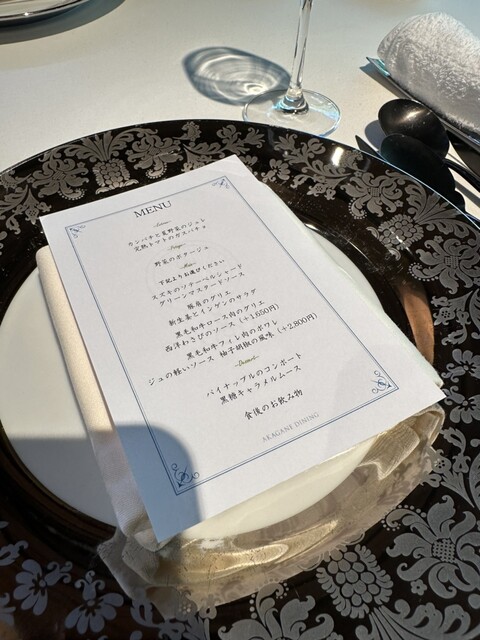 MENU
カンパチと夏野菜のジュレ
完熟トマトのガスパチョ
野菜のポタージュ
下記よりお選びください
スズキのソテーベルシャード
グリーンマスタードソース
豚肩のグリエ
新生姜とインゲンのサラダ
黒毛和牛ロース肉のグリエ
西洋わさびのソース (+1,650円)
黒毛和牛フィレ肉のポワレ
ジュの軽いソース 柚子胡椒の風味 (+2,800円)
~Dessert~
パイナップルのコンポート
黒糖キャラメルムース
食後のお飲み物
AKAGANE DINING